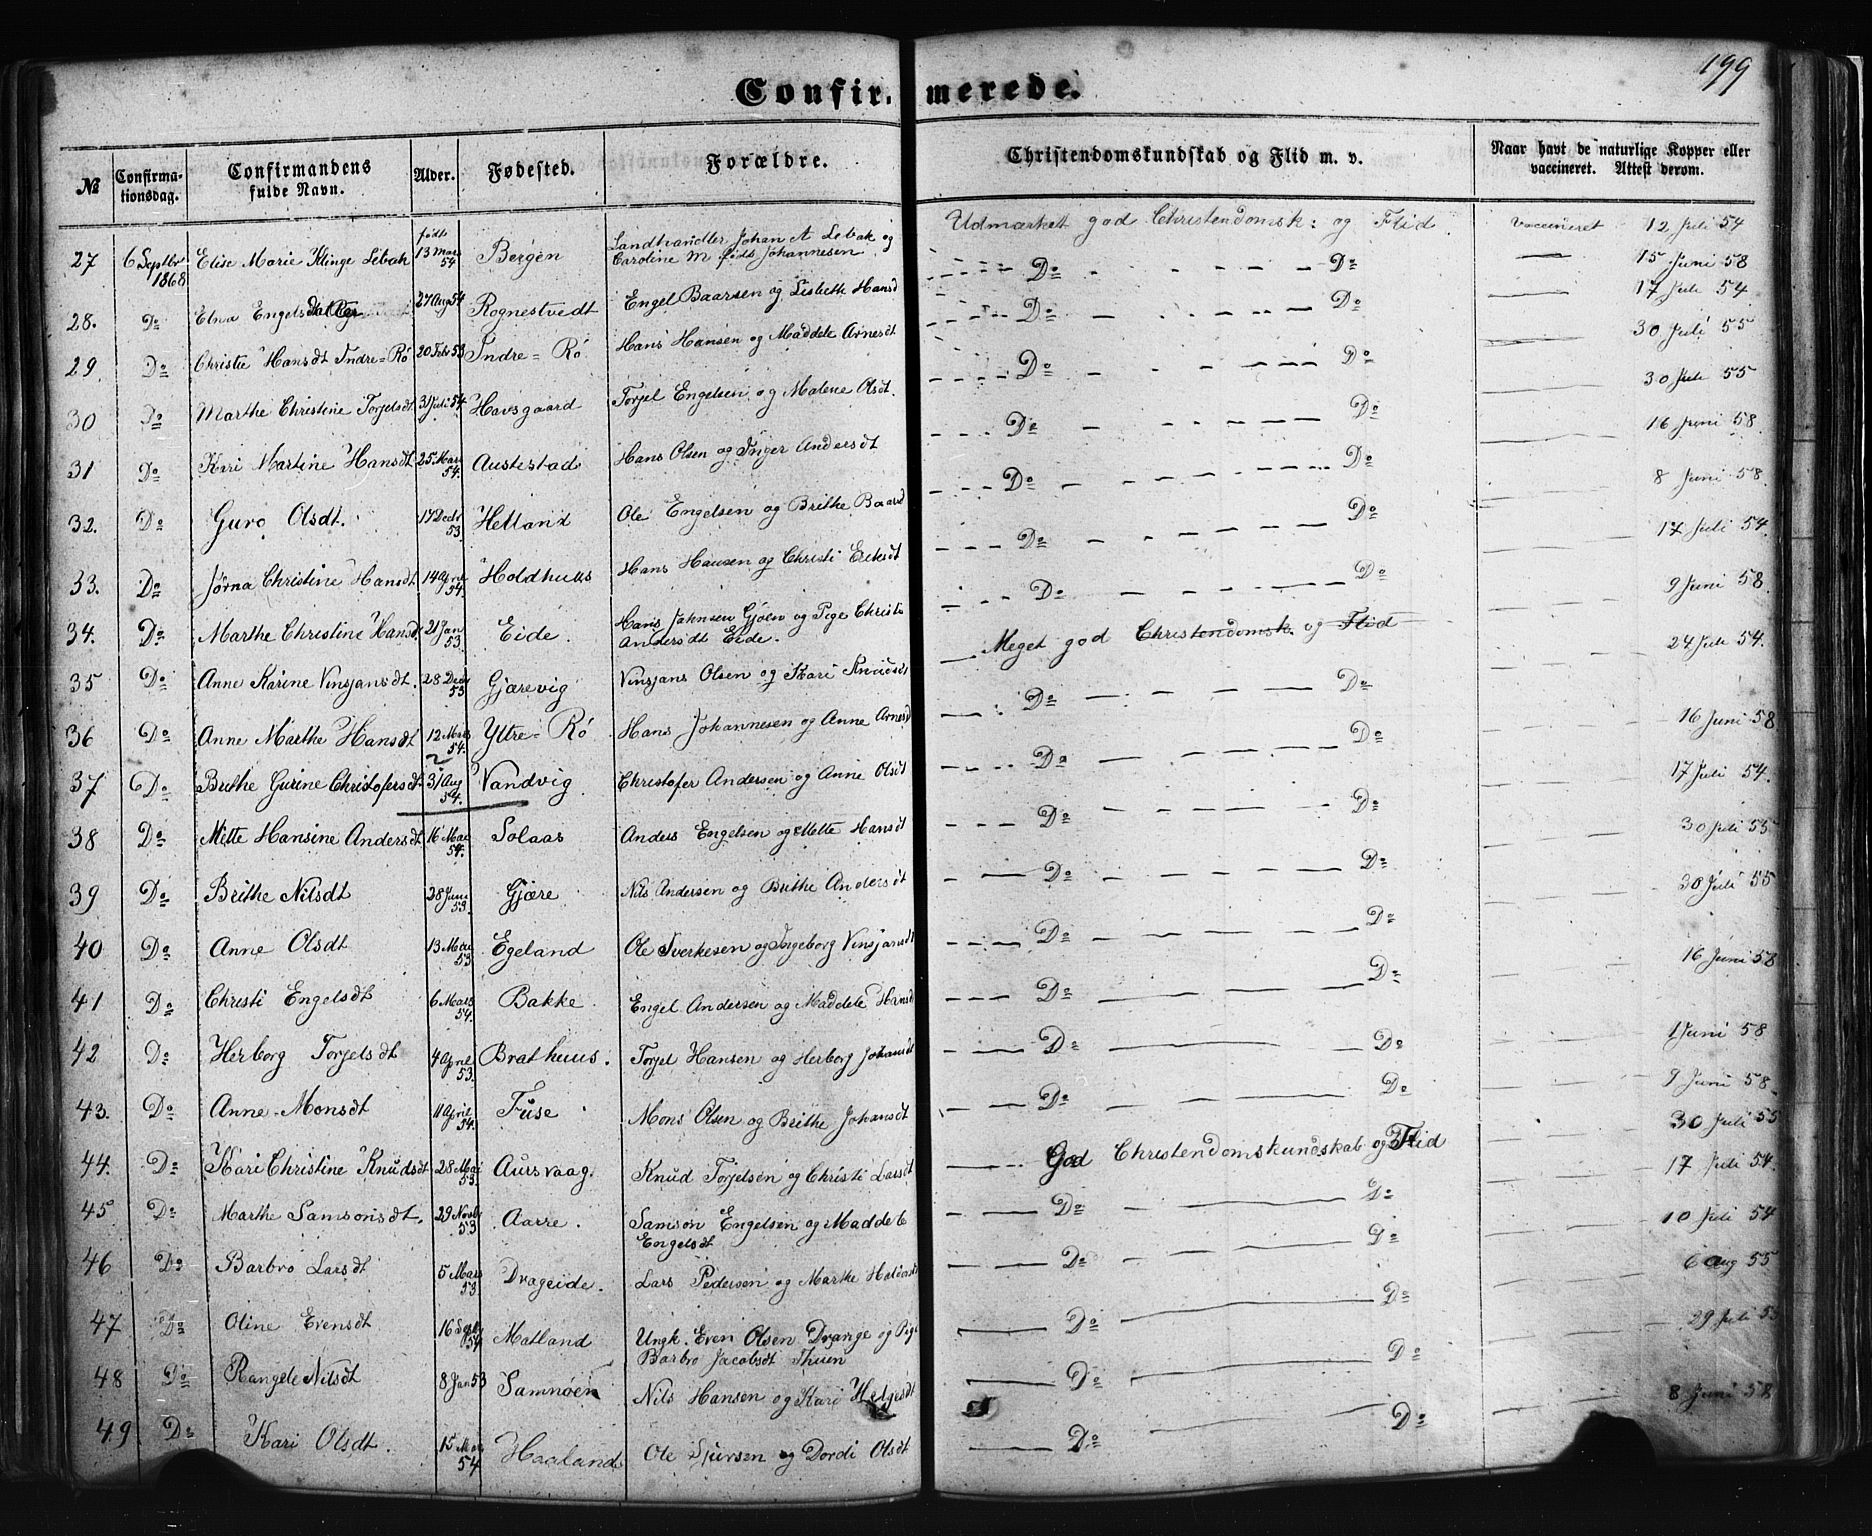 199
Confirmerede.
№ | Confirmationsdag. | Confirmandens fulde Navn. | Alder. | Fødested. | Forældre. | Christendomskundskab og Flid m. v. | Naar havt de naturlige Kopper eller vaccineret. Attest derom.
27 | 6 Septbr 1868 | Elise Marie Klinge Lebak | fødte 13 Mars 54 | Bergen | Landhandler Johan A Lebak og Caroline M født Johannesen | Udmærket god Christendomsk: og Flid | vaccineret 12 Juli 54
28. | Do | Elna Engelsdatter | 27 Aug 54 | Rognestvedt | Engel Baarsen og Lisbeth Hansd | Do Do | 15 Juni 58
29. | Do | Christie Hansdt Indre=Rö | 20 Febr 53 | Indre=Rö | Hans Hansen og Maddele Arnesdt | Do Do | 17 Juli 54
30 | Do | Marthe Christine Torjelsdt | 31 Juli 54 | Havsgaard | Torjel Engelsen og Malene Olsdt. | Do Do | 30 Juli 55
31 | Do | Kari Martine Hansdt | 25 Mars 54. | Austestad | Hans Olsen og Inger Andersdt | Do Do | 30 Juli 55
32. | Do | Guro Olsdt. | 17 Decbr 53 | Helland | Ole Engelsen og Brithe Baarsd | Do Do | 16 Juni 58
33. | Do | Jørna Christine Hansdt | 14 April 54. | Holdhuus | Hans Hansen og Christi Eriksdt | Do Do | 8 Juni 58.
34. | Do | Marthe Christine Hansdt | 21 Jan 53. | Eide. | Hans Johnsen Gjøen og Pige Christi Andersdt Eide. | Do Do | 17 Juli 54.
35 | Do | Anne Karine Vinsjansdt. | 28 Decbr 53 | Gjærevig | Vinsjans Olsen og Kari Knudsdt | Meget god Christendomsk. og Flid | 9 Juni 58.
36 | Do | Anne Marthe Hansdt | 12 Mars 54. | Yttre=Rö | Hans Johannesen og Anne Arnesd | Do Do | 24 Juli 54.
37 | Do | Brithe Gurine Christofersdt | 31 Aug 54. | Vandvig | Christofer Andersen og Anne Olsdt | Do Do | 16 Juni 58
38 | Do | Mette Hansine Andersdt | 16 Mai 54. | Solaas | Anders Engelsen og Mette Hansdt | Do Do | 17 Juli 54.
39 | Do | Brithe Nilsdt | 28 Juni 53. | Gjære | Nils Andersen og Brithe Andersdt | Do Do | 30 Juli 55
40 | Do | Anne Olsdt | 13 Mai 53 | Egeland | Ole Sverkesen og Ingeborg Vinsjansdt | Do Do | 30 Juli 55
41 | Do | Christi Engelsdt | 6 Mars 54. | Bakke. | Engel Andersen og Maddele Hansdt | Do Do | 16 Juni 58
42 | Do | Herborg Torjelsdt | 4 April 53. | Brathuus. | Torjel Hansen og Herborg Johansdt | Do Do | 1 Juni 58
43. | Do | Anne Monsdt | 11 April 54. | Fuse | Mons Olsen og Brithe Johansdt | Do Do | 9 Juni 58.
44. | Do | Kari Christine Knudsdt | 28 Mai 53 | Aursvaag. | Knud Torjelsen og Christi Larsdt | God Christendomskundskab og Flid | 30 Juli 55
45 | Do | Marthe Samsonsdt. | 29 Novbr 53 | Aarre. | Samson Engelsen og Maddele Engelsdt | Do Do | 17 Juli 54.
46 | Do | Barbro Larsdt | 5 Mars 53 | Drageide. | Lars Pedersen og Marthe | Do Do | 10 Juli 54
47 | Do | Oline Evensdt | 16 Septbr 54 | Matland | Ungk. Even Olsen Drange og Pige Barbro Jacobsdt Thuen | Do Do | 6 Aug 55
48 | Do | Rangele Nilsdt | 8 Jan 53 | Samnøen | Nils Hansen og Kari Helgesdt | Do Do | 29 Juli 53
49 | Do | Kari Olsdt. | 15 54 | Haaland | Ole Sjursen og Dordi Olsdt | Do Do | 8 Juni 58